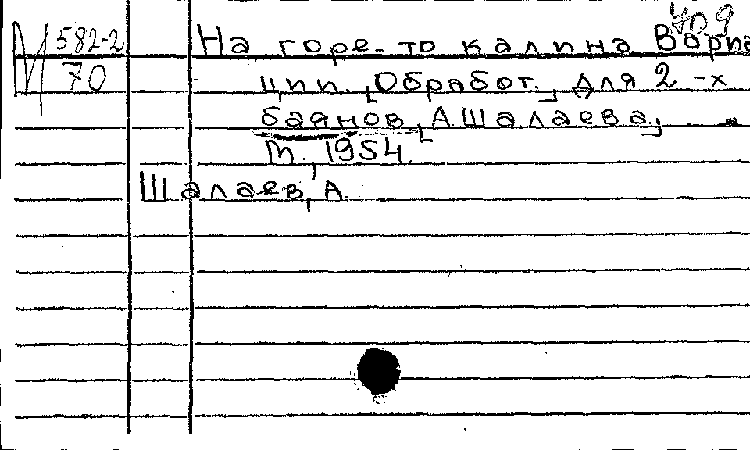 409
И 582-2
70
На горе-то калина Вариа
ции. [Обработ. для 2-х
баянов, А. Шалаева],
М., 1954.
Шалаев, А.